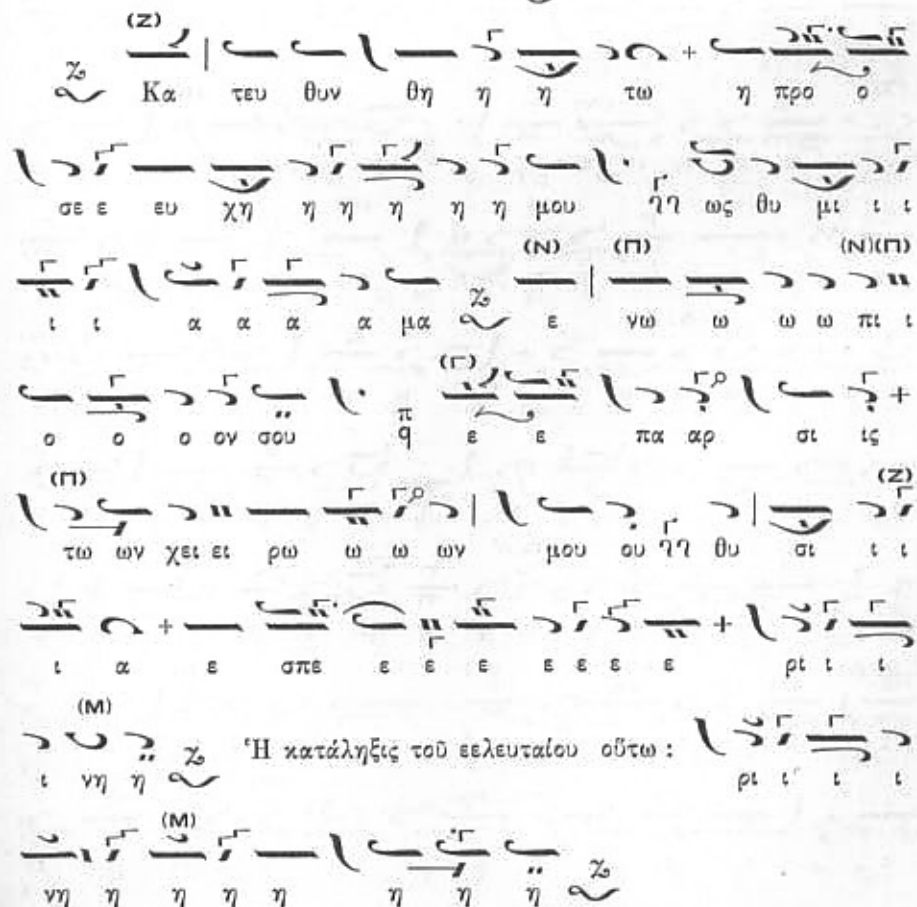 (Ζ)
Κα τευ θυν θη η η τω η προ ο
σε ε ευ χη η η η η η μου ως θυ μι ι ι
(Ν) (Π) (Ν)(Π)
ι ι α α α α μα ε νω ω ω ω πι ι
(Γ)
ο ο ο ον σου π q ε ε πα αρ σι ις
(Π) (Ζ)
τω ων χει ει ρω ω ω ων μου ου θυ σι ι ι
ι α ε σπε ε ε ε ε ε ε ε ρι ι ι
(Μ)
ι νη η Ἡ κατάληξις τοῦ εελευταίου οὕτω : ρι ι ι ι
(Μ)
νη η η η η η η η